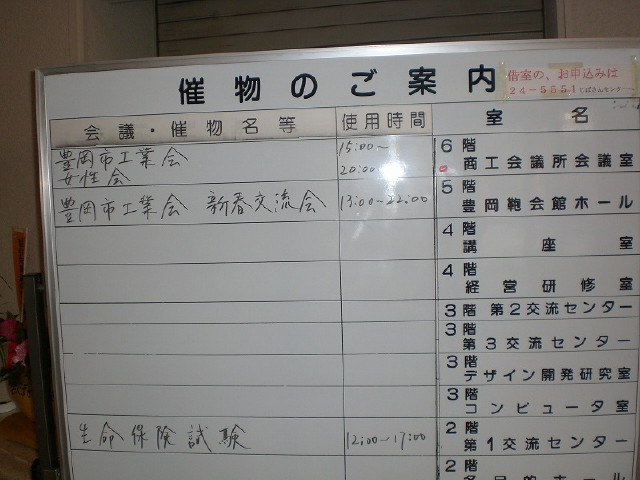 催物のご案内
貸室の、お申込みは
24-5551 じばさんセンター
会議・催物名等 使用時間 室名
豊岡市工業会 15:00~
女性会 20:00
6階 商工会議所会議室
豊岡市工業会 新春交流会 13:00~22:00
5階 豊岡鞄会館ホール
4階 講座室
4階 経営研修室
3階 第2交流センター
3階 第3交流センター
3階 デザイン開発研究室
3階 コンピュータ室
生命保険試験 12:00~17:00
2階 第1交流センター
2階 多目的ホール